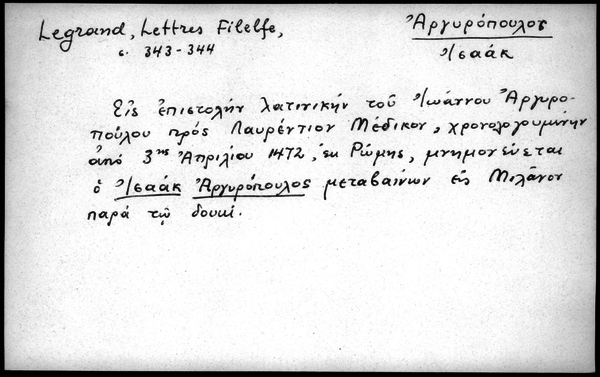 Legrand, Lettres Filelfe,
c. 343-344
Ἀργυρόπουλος
Ἰσαάκ
Εἰς ἐπιστολὴν λατινικὴν τοῦ Ἰωάννου Ἀργυρο-
πούλου πρὸς Λαυρέντιον Μέδικον, χρονολογουμένην
ἀπὸ 3ης Ἀπριλίου 1472, ἐκ Ρώμης, μνημονεύεται
ὁ Ἰσαάκ Ἀργυρόπουλος μεταβαίνων εἰς Μιλᾶνον
παρὰ τῷ δουκί.